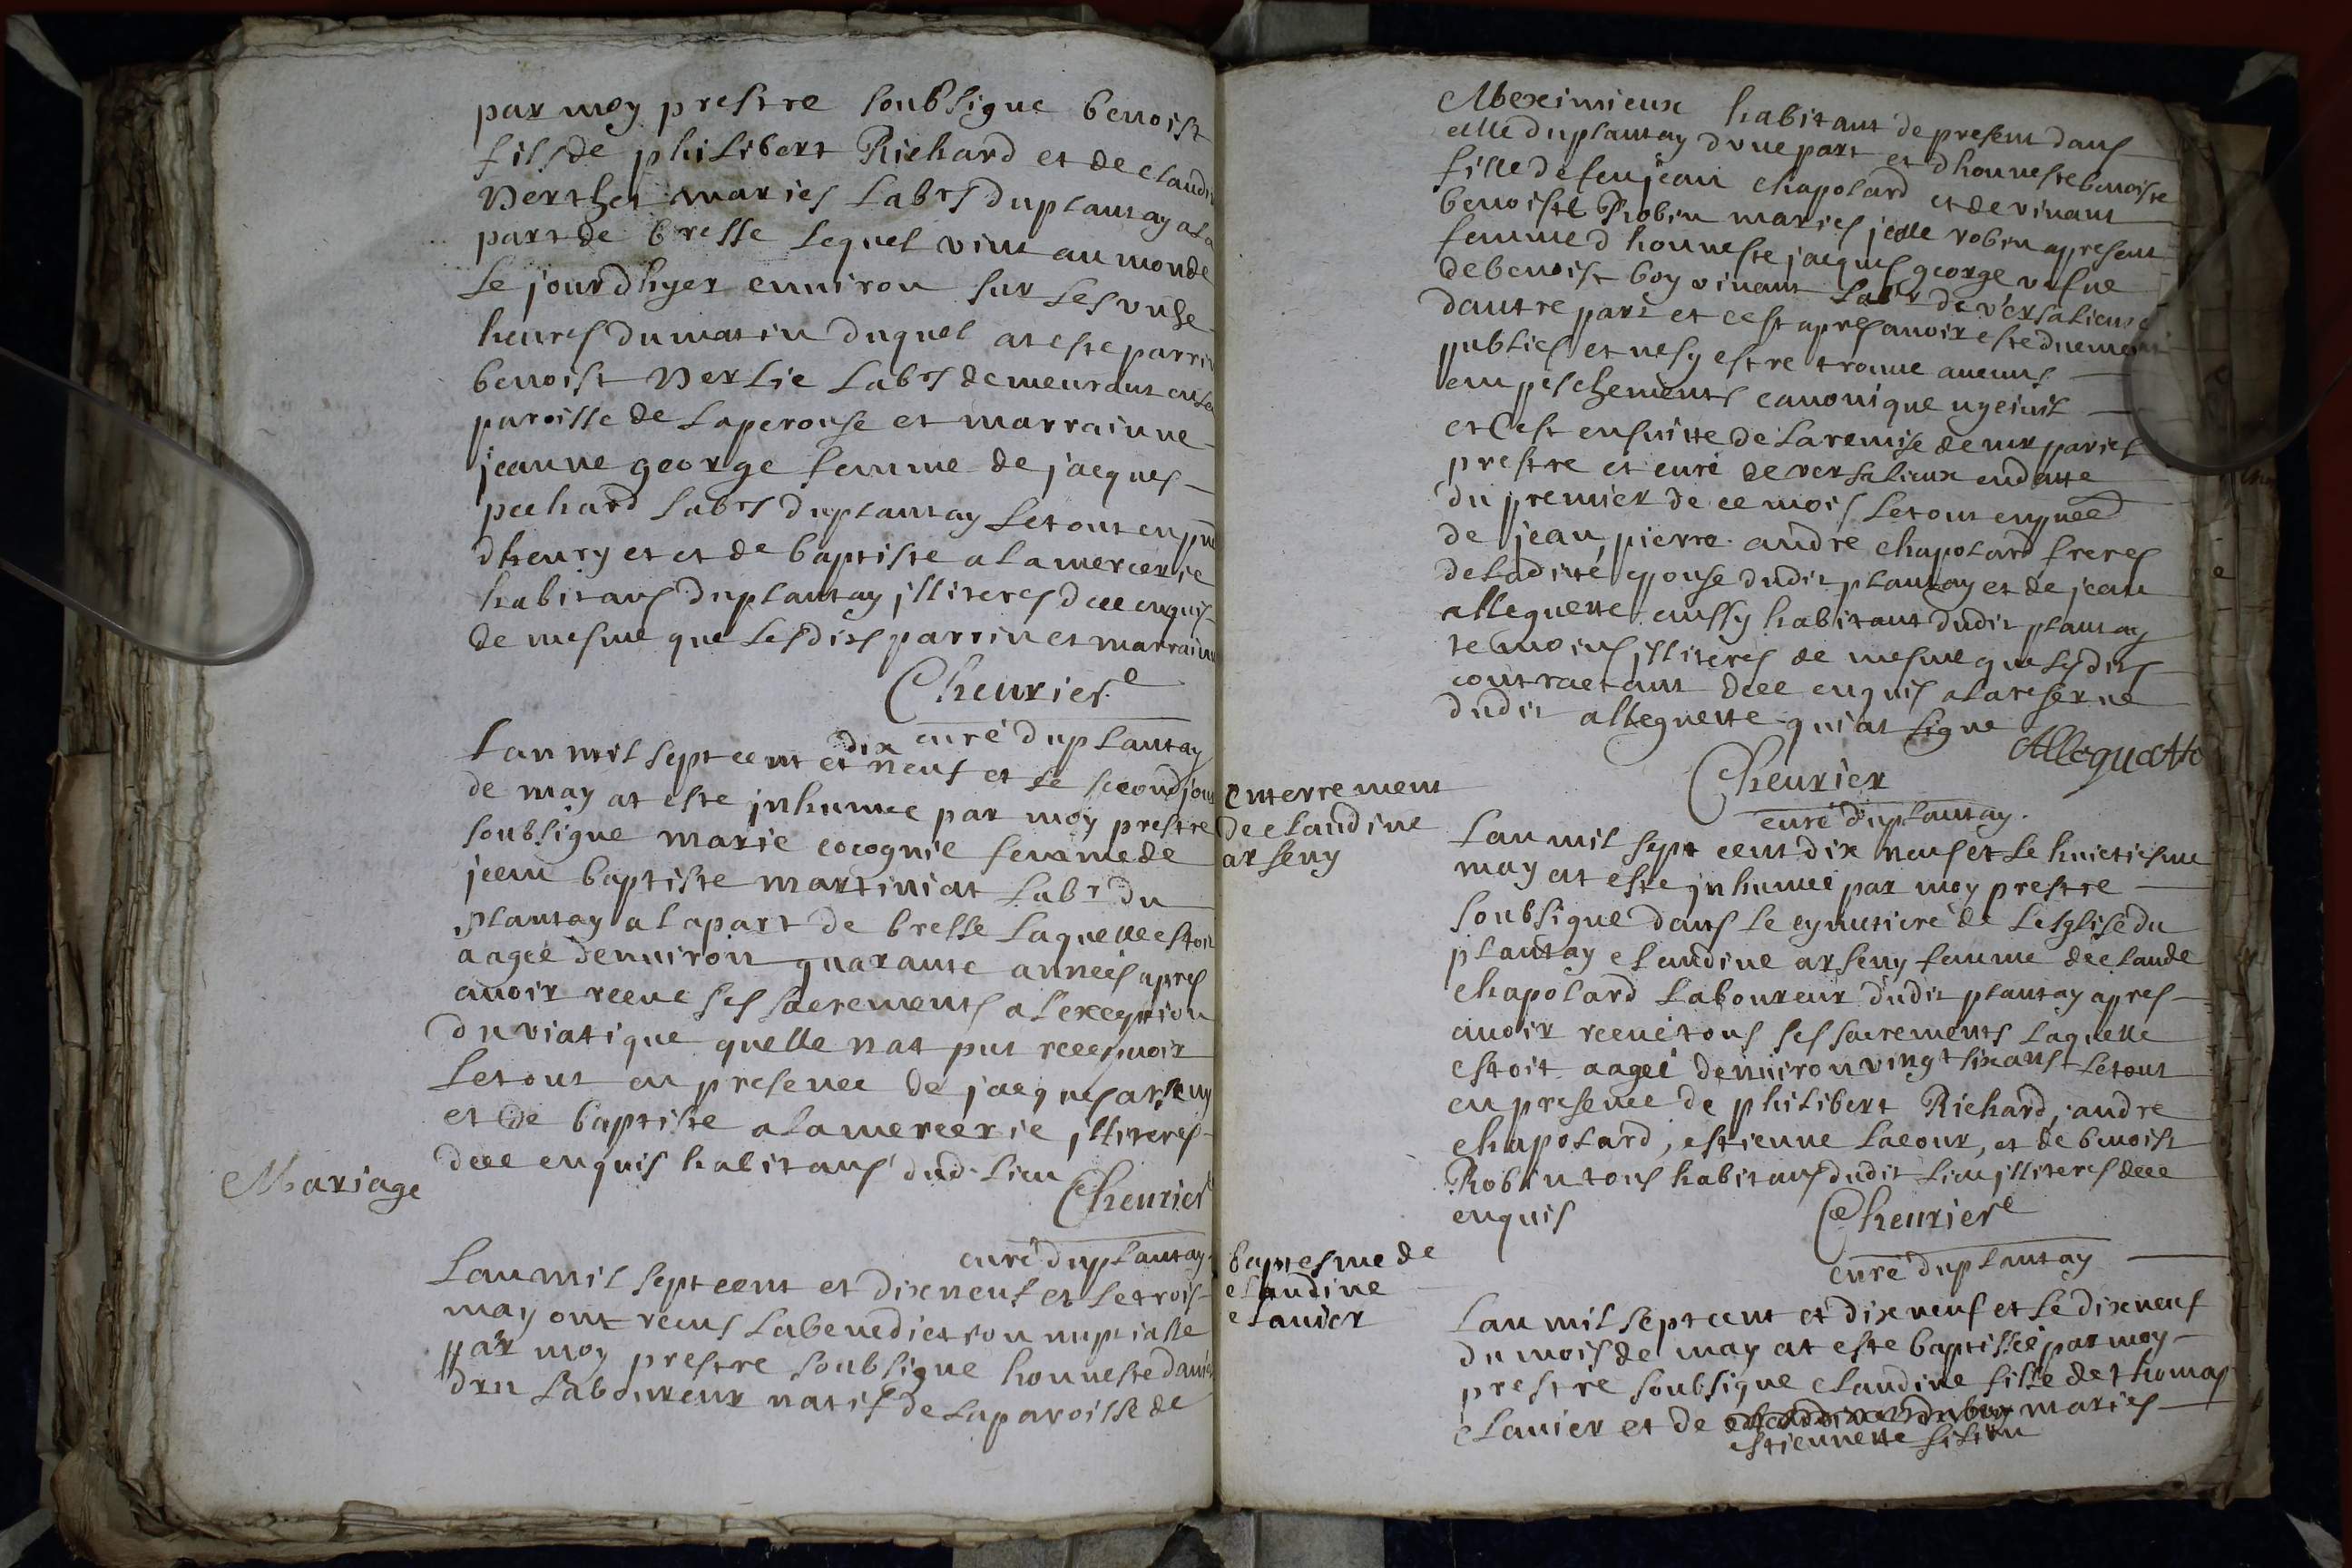 par moy prestre soubsigne benoist
fils de philibert Richard et de claudi
Verthet maries Labrs du plantay a la
part de bresse lequel vint au monde
le jourdhyer environ sur les unse
heures du matin duquel at este parrin
benoist Verlie Labrs demeurant en la
paroisse de Laperouse et marrainne
jeanne george femme de jacques
pechard Labrs du plantay le tout en pnce
dhenry et et de baptiste a lamercerie
habitans du plantay illiteres dece enquis
de mesme que lesdits parrin et marraine
Cheurier
curé du plantay
Lan mil sept cent et dix neuf et le second jour
de may at este inhumee par moy prestre
soubsigne marie cocognie femme de
jean baptiste martiniat Labr du
plantay a la part de bresse laquelle estoit
aagee denviron quarante années apres
avoir receue ses sacrements a lexception
du viatique quelle nat put recepvoir
Le tout en presence de jacques arseny
et de baptiste alamercerie illiteres
dece enquis habitans dud. lieu
Cheurier
curé du plantay
Mariage
Lan mil sept cent et dix neuf et le trois
may ont receus la benediction nuptialle
par moy prestre soubsigne honneste
dru laboureur natif de la paroisse de
Meximieux habitant de present dans
celle du plantay dune part et dhonneste benoiste
fille de feu jean chapolard et de vivant
benoiste Robin maries jcelle robin appresent
femme dhonneste jacques george vefve
de benoist boy vivant Labr de versalieux
dautre part et cest apres avoir este duement
publies et nesy estre trouve aucuns
empeschements canonique ny civil
et cest ensuitte de la remise de mr paries
prestre et curé de versalieux en datte
du premier de ce mois le tout en pnce
de jean, pierre andre chapolard freres
de ladite epouse dudit plantay et de jean
alleguette aussy habitant dudit plantay
temoins illiteres de mesme que lesdits
contractant dece enquis a la reserve
dudit alleguette qui at signe
Alleguette
Cheurier
curé du plantay.
Enterrement
de claudine
arseny
Lan mil sept cent dix neuf et le huictiesme
may at este inhumee par moy prestre
soubsigne dans le cymetiere de Lesglise du
plantay claudine arseny femme de claude
chapolard Laboureur dudit plantay apres
avoir receue tous ses sacrements laquelle
estoit aagée denviron vingt six ans le tout
en presence de philibert Richard, andre
chapolard, estienne lacour, et de benoist
Robin tous habitans dudit lieu illiteres dece
enquis
Cheurier
curé du plantay
baptesme de
claudine
clavier
Lan mil sept cent et dix neuf et le dix neuf
du mois de may at este baptissée par moy
prestre soubsigne claudine fille de thomas
clavier et de maries
estiennette